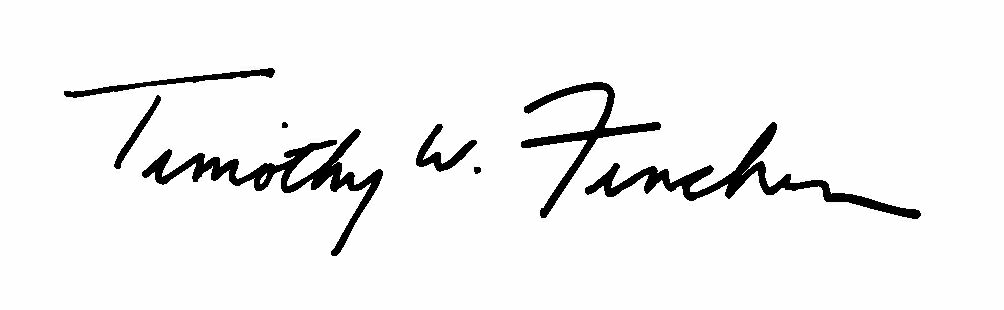 Timothy W. Fincher